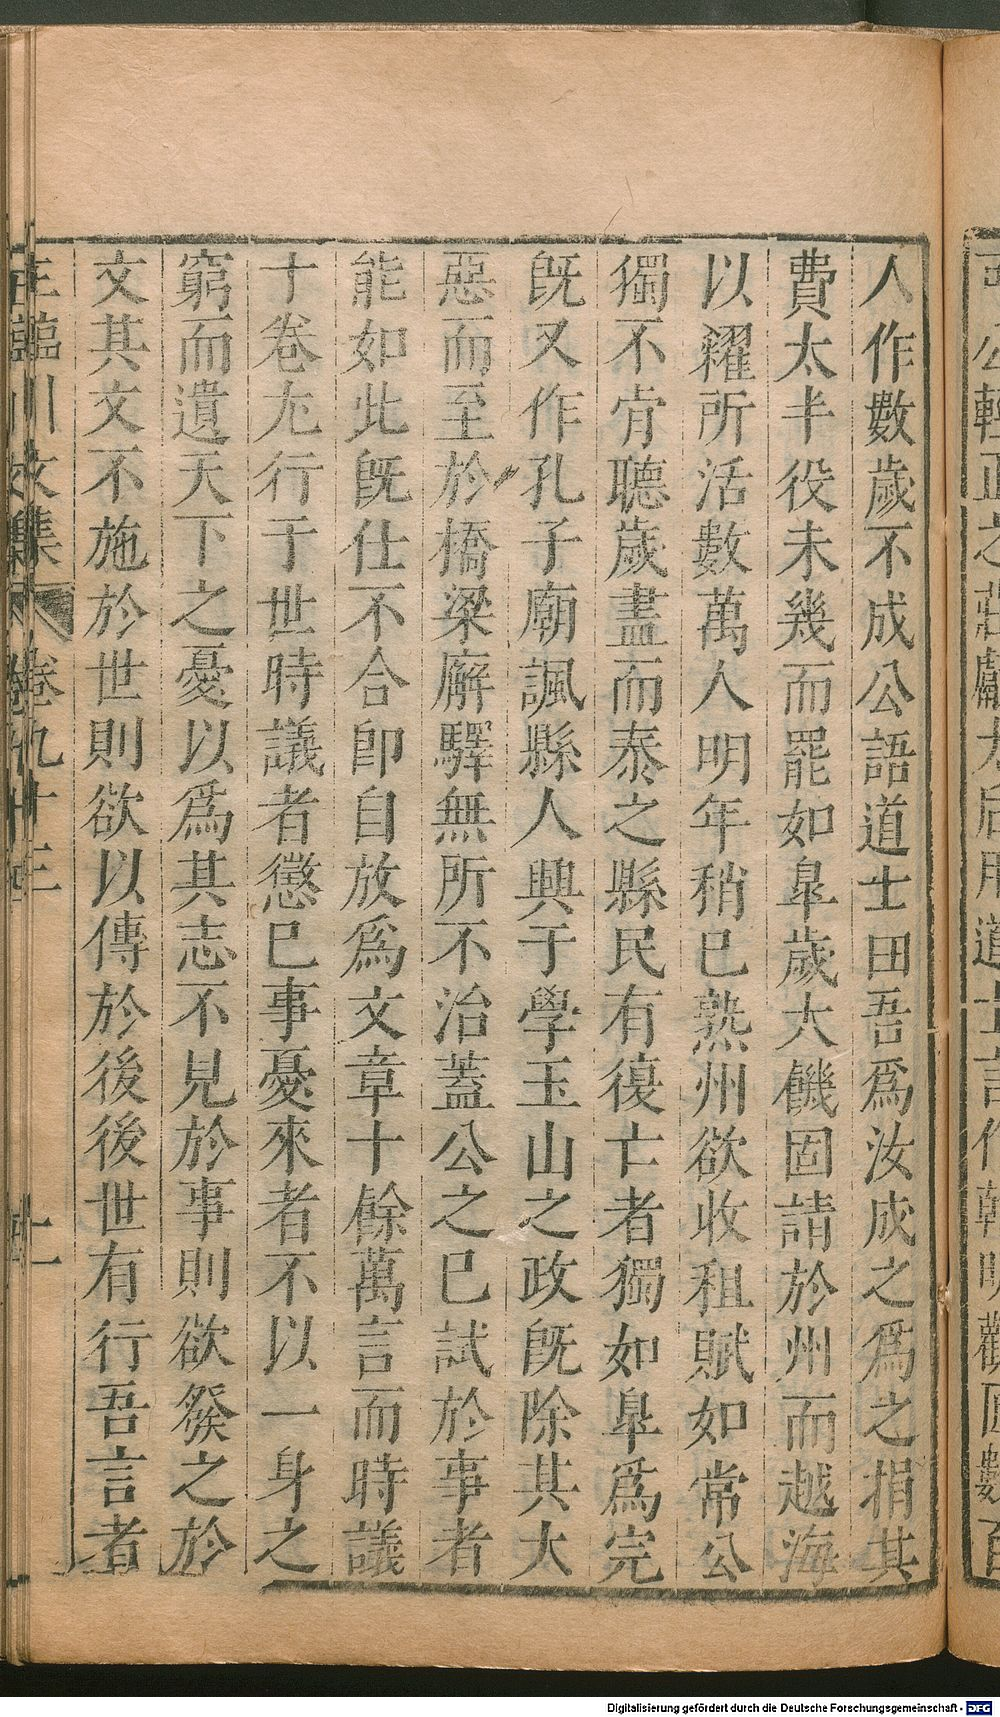 人作數歲不成公語道士田吾爲汝成之爲之捐其
費太半役未幾而罷如臯歲大饑固請於州而越海
以糴所活數萬人明年稍巳熟州欲收租賦如常公
獨不肯聽歲盡而泰之縣民有復亡者獨如臯爲完
旣又作孔子廟諷縣人興于學玉山之政旣除其大
惡而至於橋梁廨驛無所不治蓋公之巳試於事者
能如此旣仕不合卽自放爲文章十餘萬言而時議
十卷尤行于世時議者懲巳事憂來者不以一身之
窮而遺天下之憂以爲其志不見於事則欲發之於
文其文不施於世則欲以傳於後後世有行吾言者
王臨川文集 卷九十三 十一
Digitalisierung gefördert durch die Deutsche Forschungsgemeinschaft - DFG